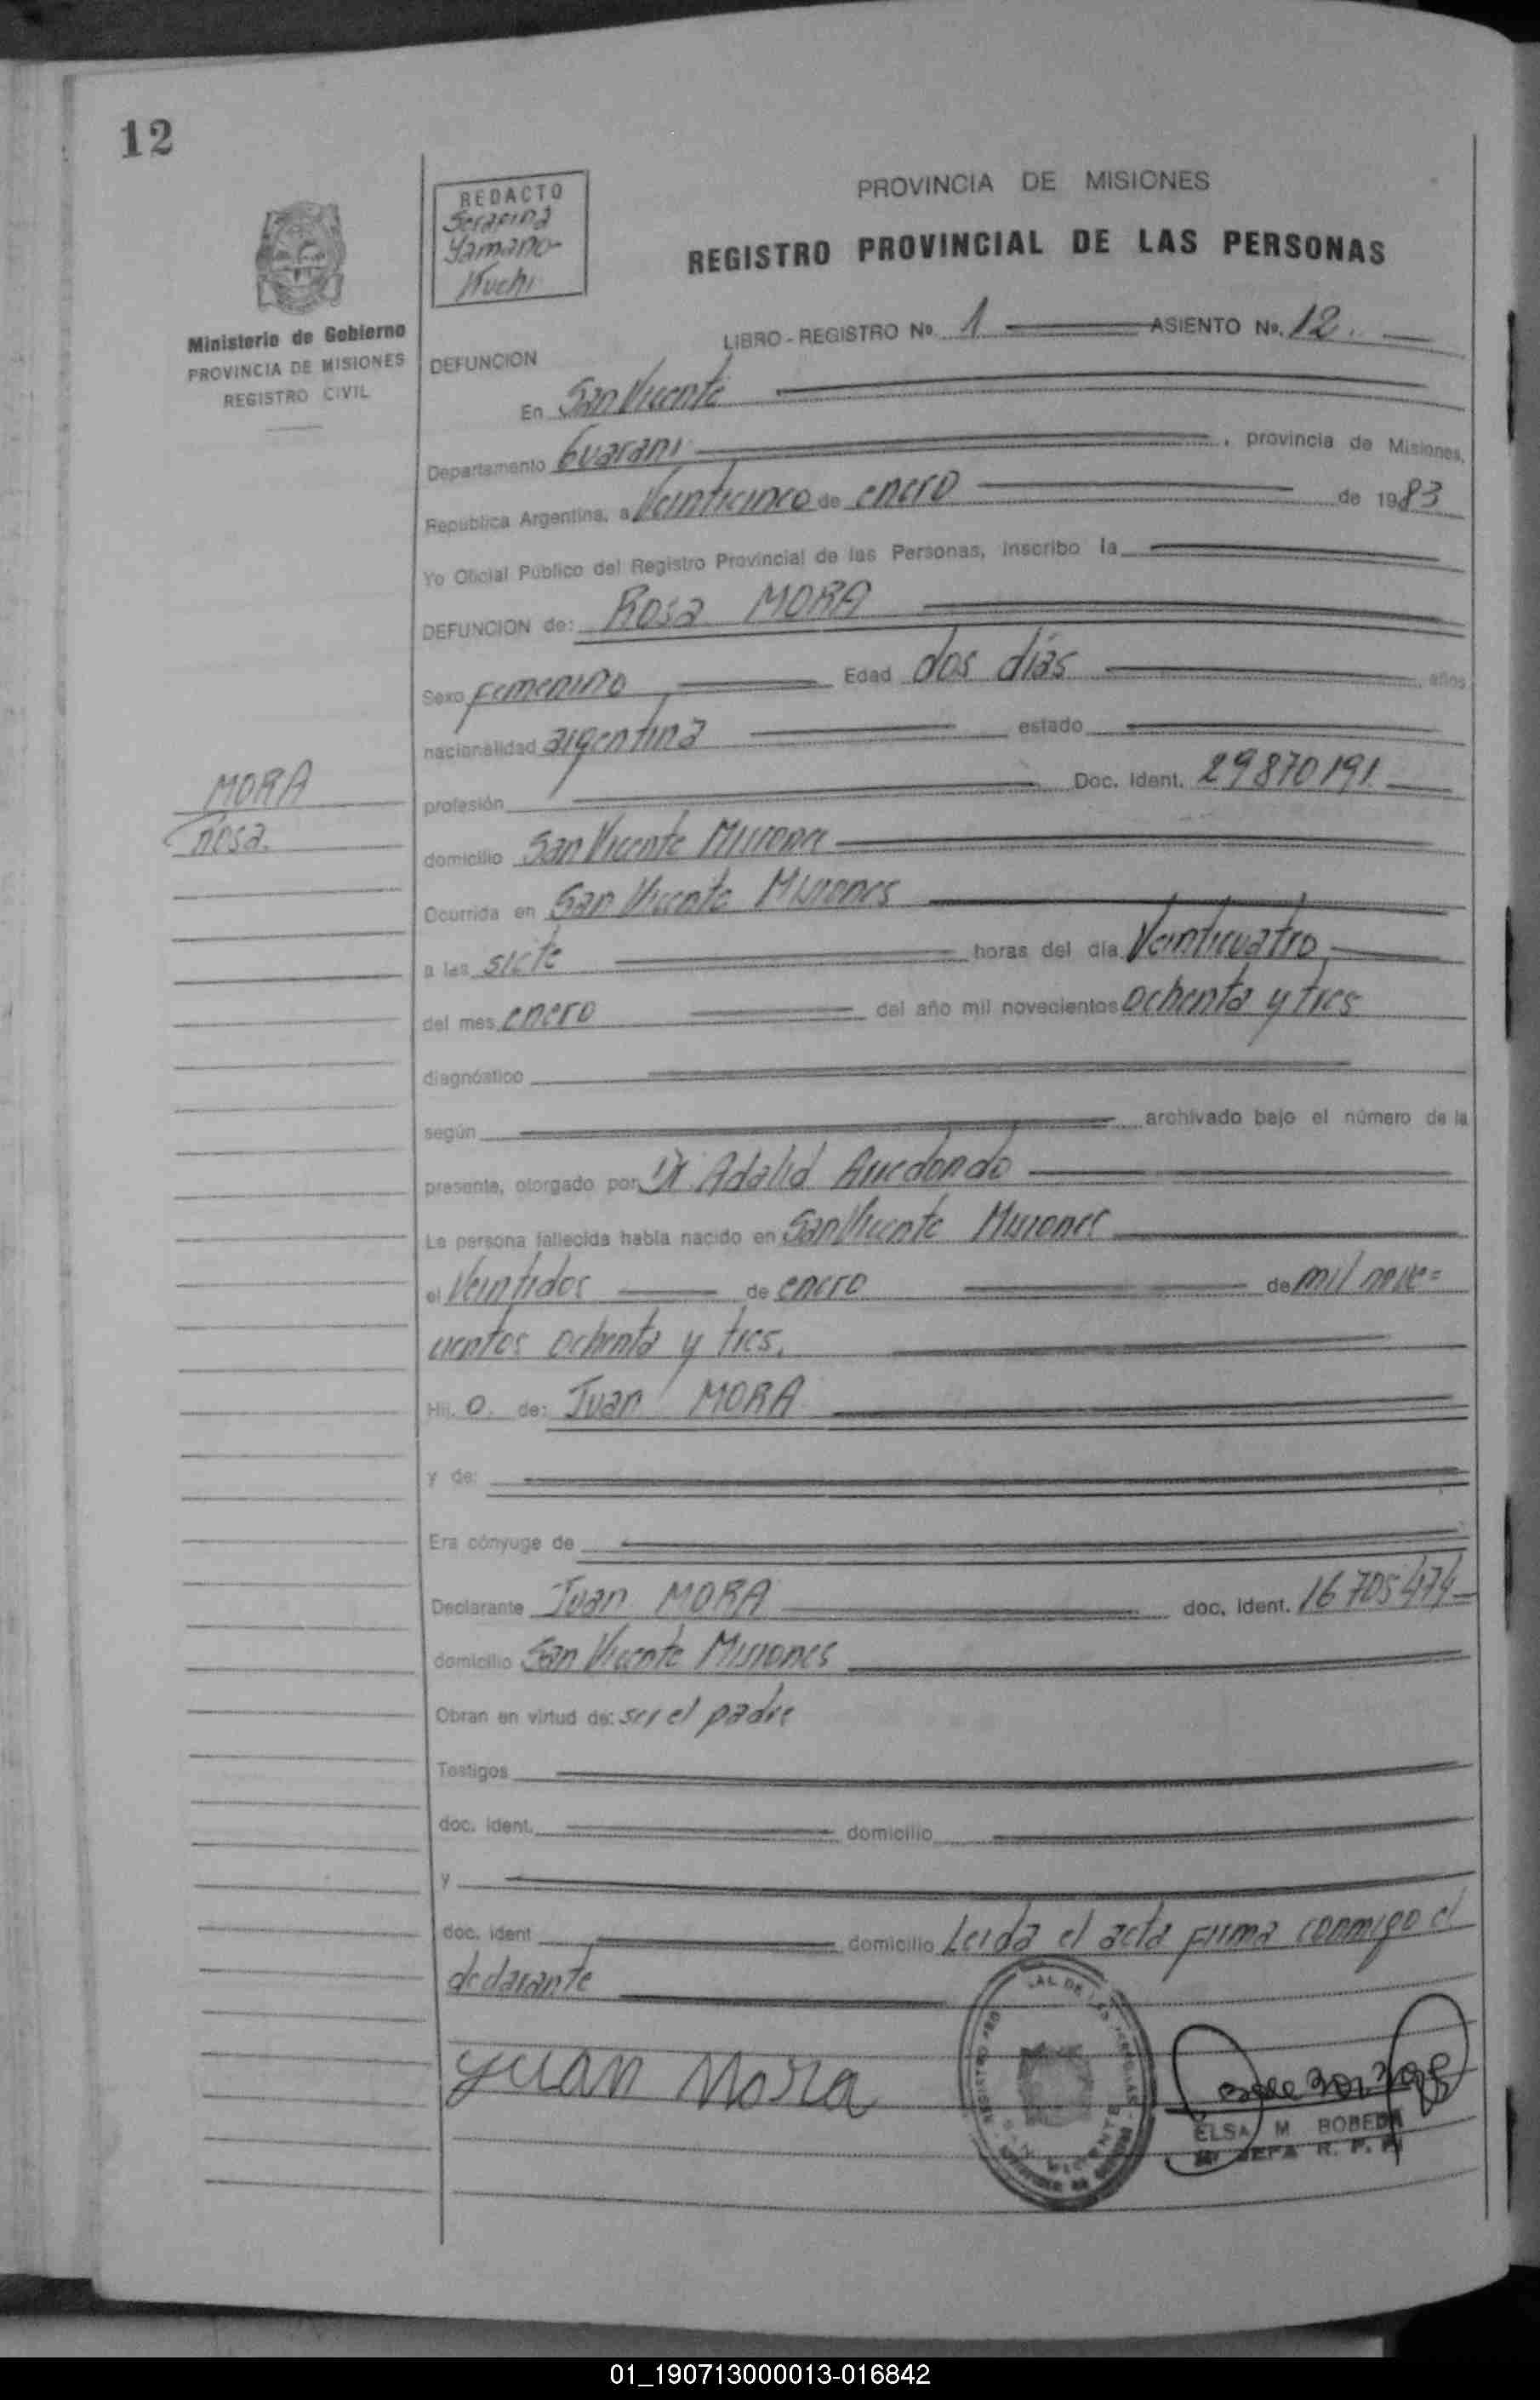 12
REDACTO
Serafina
Yamano-
Kuchi
PROVINCIA DE MISIONES
REGISTRO PROVINCIAL DE LAS PERSONAS
Ministerio de Gobierno
PROVINCIA DE MISIONES
REGISTRO CIVIL
LIBRO - REGISTRO No. 1 ASIENTO No. 12.
DEFUNCION
En San Vicente
Departamento Guarani, provincia de Misiones,
República Argentina, a Veinticinco de enero de 1983
Yo Oficial Público del Registro Provincial de las Personas, inscribo la
DEFUNCION de: Rosa MORA
Sexo femenino Edad dos días años
nacionalidad argentina estado
MORA
Rosa.
profesión Doc. Ident. 29870191.
domicilio San Vicente Misiones
Ocurrida en San Vicente Misiones
a las siete horas del día Veinticuatro
del mes enero del año mil novecientos ochenta y tres
diagnóstico
según archivado bajo el número de la
presente, otorgado por Dr Adalid Arredondo
La persona fallecida había nacido en San Vicente Misiones
el Veintidos de enero de mil nove=
cientos ochenta y tres.
Hij. o. de: Juan MORA
y de:
Era cónyuge de
Declarante Juan MORA doc. ident. 16705474
domicilio San Vicente Misiones
Obran en virtud de: ser el padre
Testigos
doc. ident. domicilio
y
doc. ident domicilio Leida el acta firma conmigo el
declarante
Juan Mora
ELSA M BOBEDA
JEFA R. P. P.
01_190713000013-016842